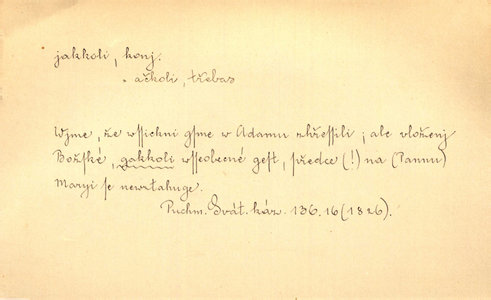 jakkoli, konj.
ačkoli, třebas
Wjme, že wssichni gsme w Adamu zhřessili; ale vloženj
Božské, gakkoli wsseobecné gest, předce (!) na (Pannu)
Maryi se newztahuge.
Puchm. Svát. káz. 136.16 (1826).